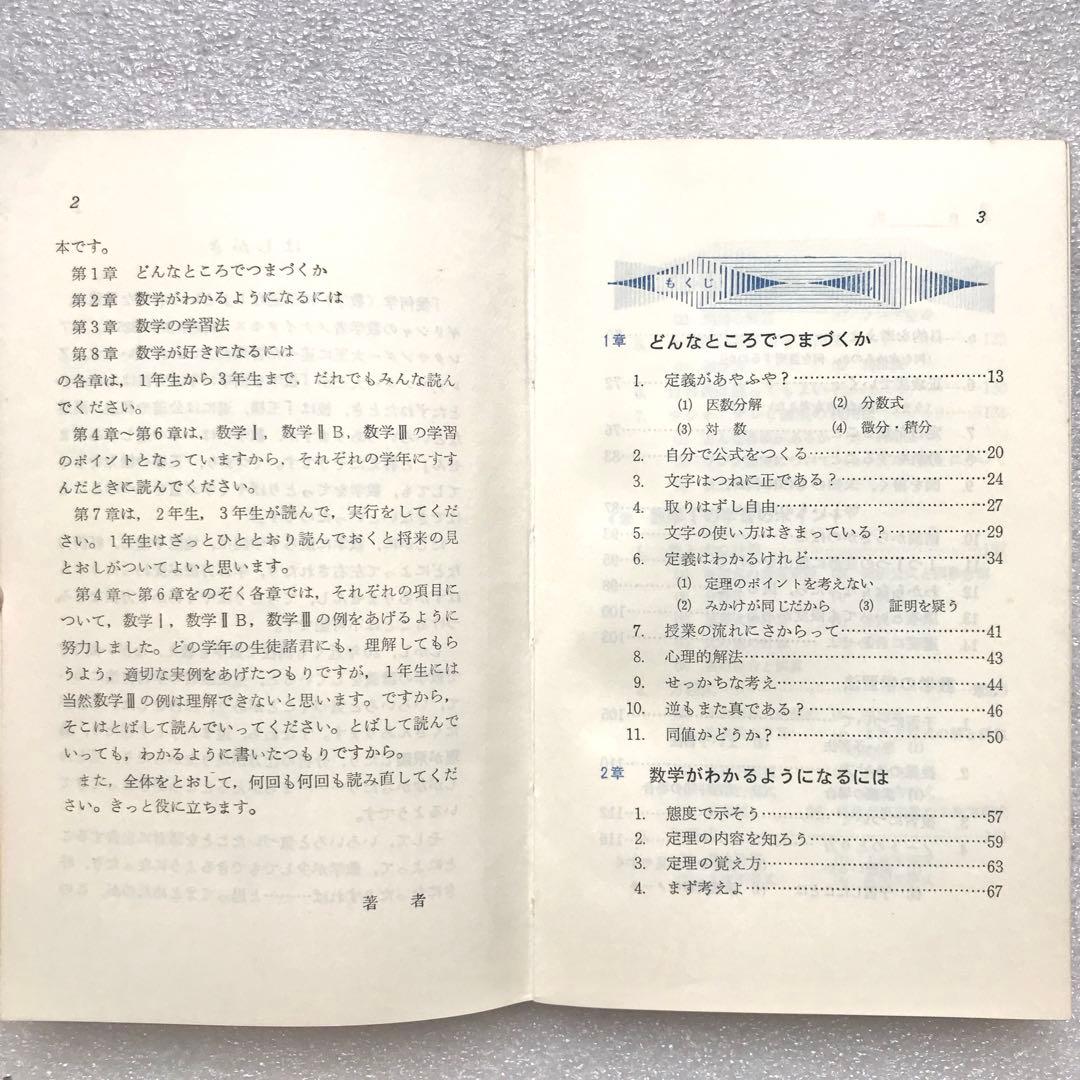 2
本です。
第1章　どんなところでつまづくか
第2章　数学がわかるようになるには
第3章　数学の学習法
第8章　数学が好きになるには
の各章は，1年生から3年生まで，だれでもみんな読ん
でください。
第4章〜第6章は，数学Ⅰ，数学ⅡB，数学Ⅲの学習
のポイントとなっていますから，それぞれの学年にすす
んだときに読んでください。
第7章は，2年生，3年生が読んで，実行をしてくだ
さい。1年生はざっとひととおり読んでおくと将来の見
とおしがついてよいと思います。
第4章〜第6章をのぞく各章では，それぞれの項目に
ついて，数学Ⅰ，数学ⅡB，数学Ⅲの例をあげるように
努力しました。どの学年の生徒諸君にも，理解してもら
うよう，適切な実例をあげたつもりですが，1年生には
当然数学Ⅲの例は理解できないと思います。ですから，
そこはとばして読んでいってください。とばして読んで
いっても，わかるように書いたつもりですから。
また，全体をとおして，何回も何回も読み直してくだ
さい。きっと役に立ちます。
著　者
3
もくじ
1章　どんなところでつまづくか
1.　定義があやふや？……………………13
(1)　因数分解　(2)　分数式
(3)　対　数　(4)　微分・積分
2.　自分で公式をつくる……………………20
3.　文字はつねに正である？……………………24
4.　取りはずし自由……………………27
5.　文字の使い方はきまっている？……………………29
6.　定義はわかるけれど……………………34
(1)　定理のポイントを考えない
(2)　みかけが同じだから　(3)　証明を疑う
7.　授業の流れにさからって……………………41
8.　心理的解法……………………43
9.　せっかちな考え……………………44
10.　逆もまた真である？……………………46
11.　同値かどうか？……………………50
2章　数学がわかるようになるには
1.　態度で示そう……………………57
2.　定理の内容を知ろう……………………59
3.　定理の覚え方……………………63
4.　まず考えよ……………………67